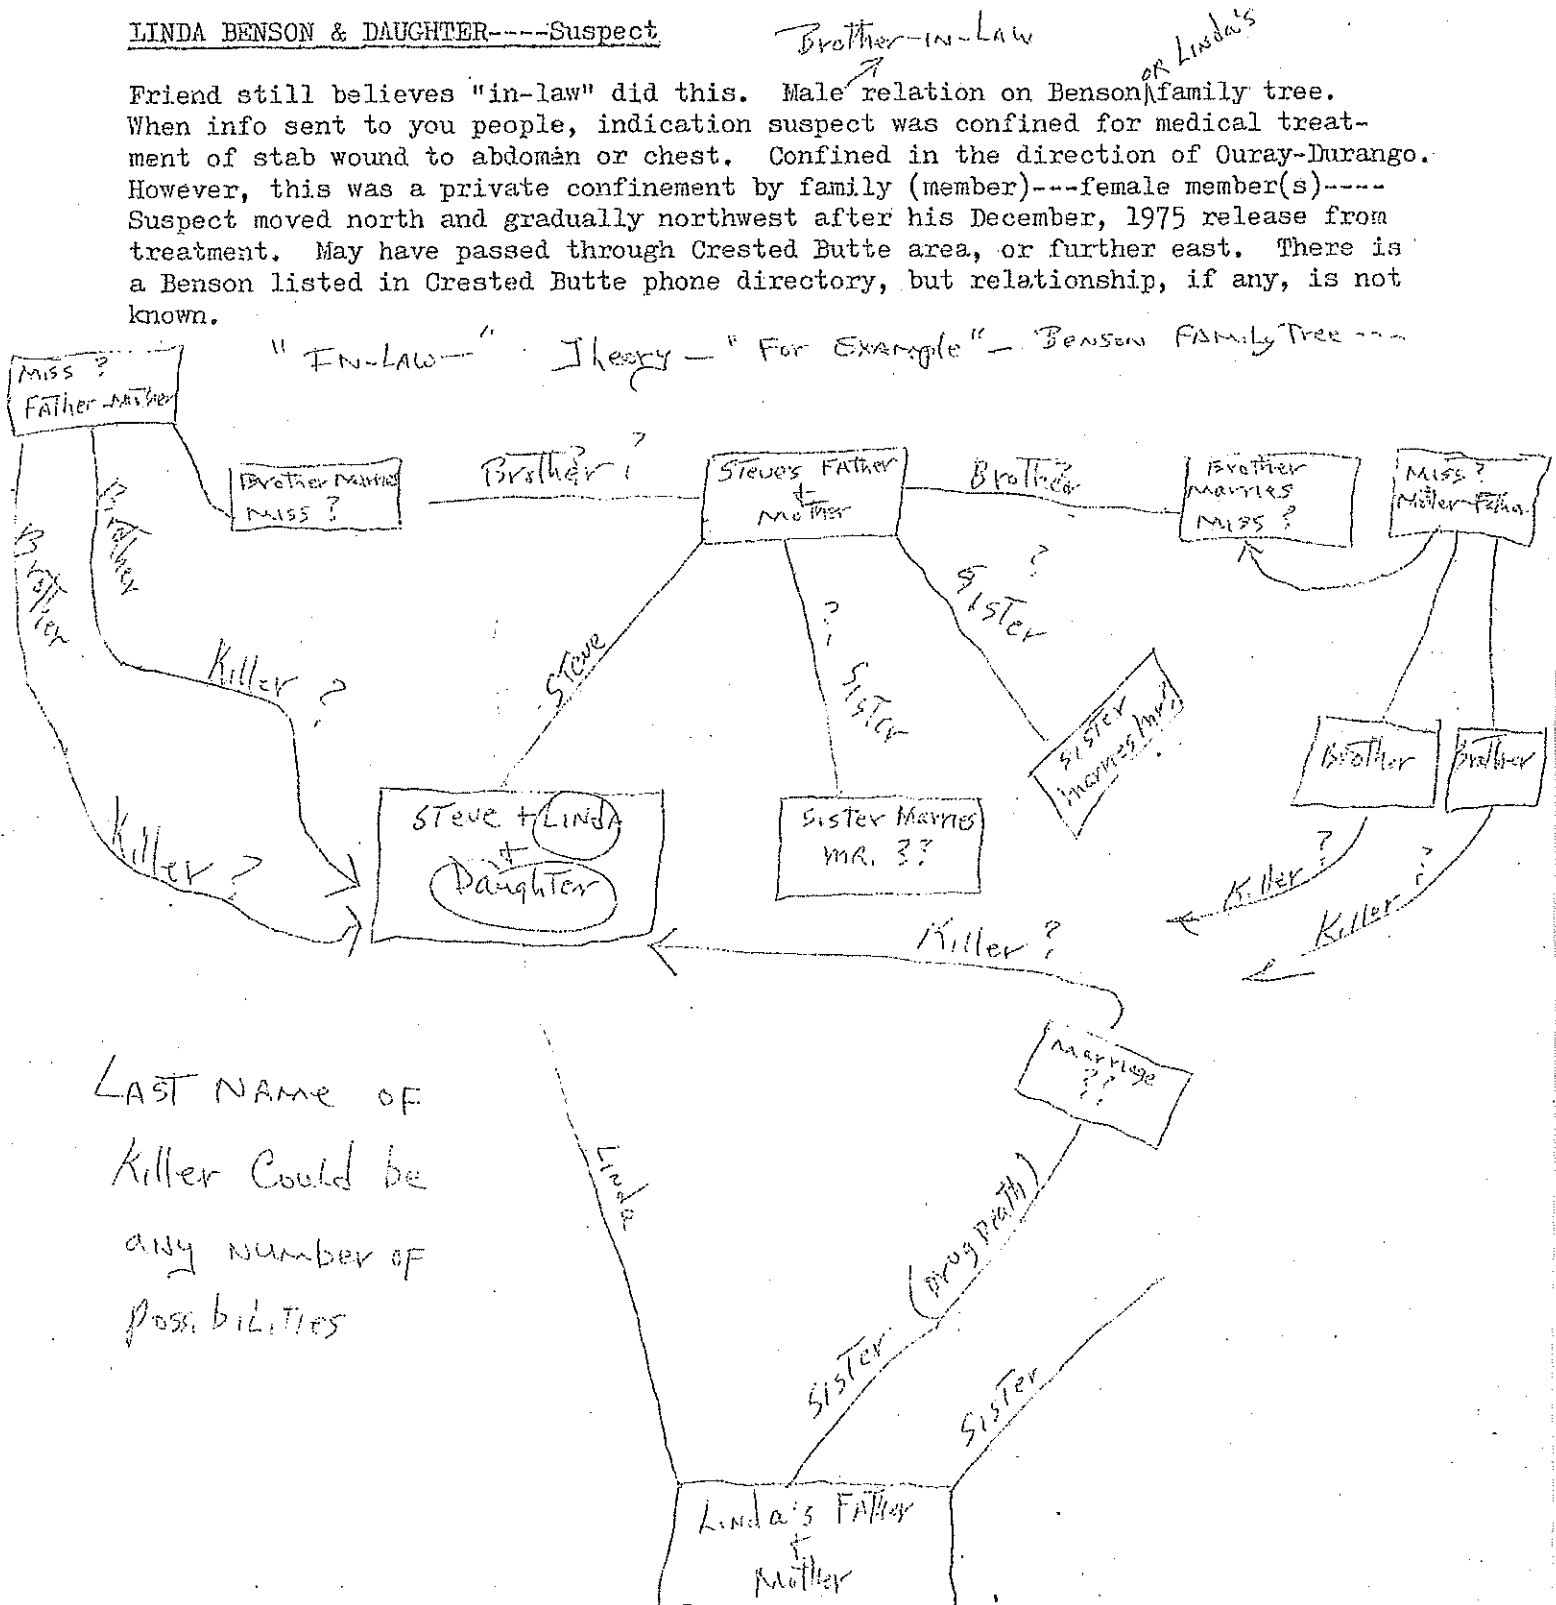 LINDA BENSON & DAUGHTER----Suspect
Brother-IN-LAW
OR LINda's
Friend still believes "in-law" did this. Male relation on Benson family tree.
When info sent to you people, indication suspect was confined for medical treat-
ment of stab wound to abdoman or chest. Confined in the direction of Ouray-Durango.
However, this was a private confinement by family (member)---female member(s)----
Suspect moved north and gradually northwest after his December, 1975 release from
treatment. May have passed through Crested Butte area, or further east. There is
a Benson listed in Crested Butte phone directory, but relationship, if any, is not
known.
"IN-LAW—" Theory — "For EXAMple" — BENSON FAMILy Tree ----
Miss ?
FATher-Mother
Brother Marries
Miss ?
Brother ?
STeve's FATher
+
MoTher
Brother ?
Brother
Marries
Miss ?
Miss ?
Mother-Father
Brother
Brother
Killer ?
Killer ?
STeve
? SisTer
? SisTer
SisTer
marries Mr.
Brother
Brother
STeve + LINdA
+
DaughTer
SisTer Marries
MR. ??
Killer ?
Killer ?
Killer ?
Marriage
??
LAST NAMe OF
Killer Could be
aNy NUmber OF
PossibiLiTies
LINda
SisTer (Drug Death)
SisTer
LINda's FATher
+
MoTher